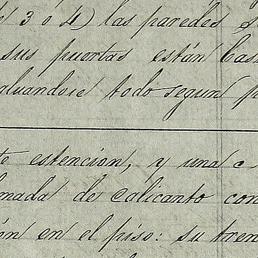 3 ó 4) las paredes
sus puertas están
todo segun
estencion, y una
de calicanto con
en el piso: su